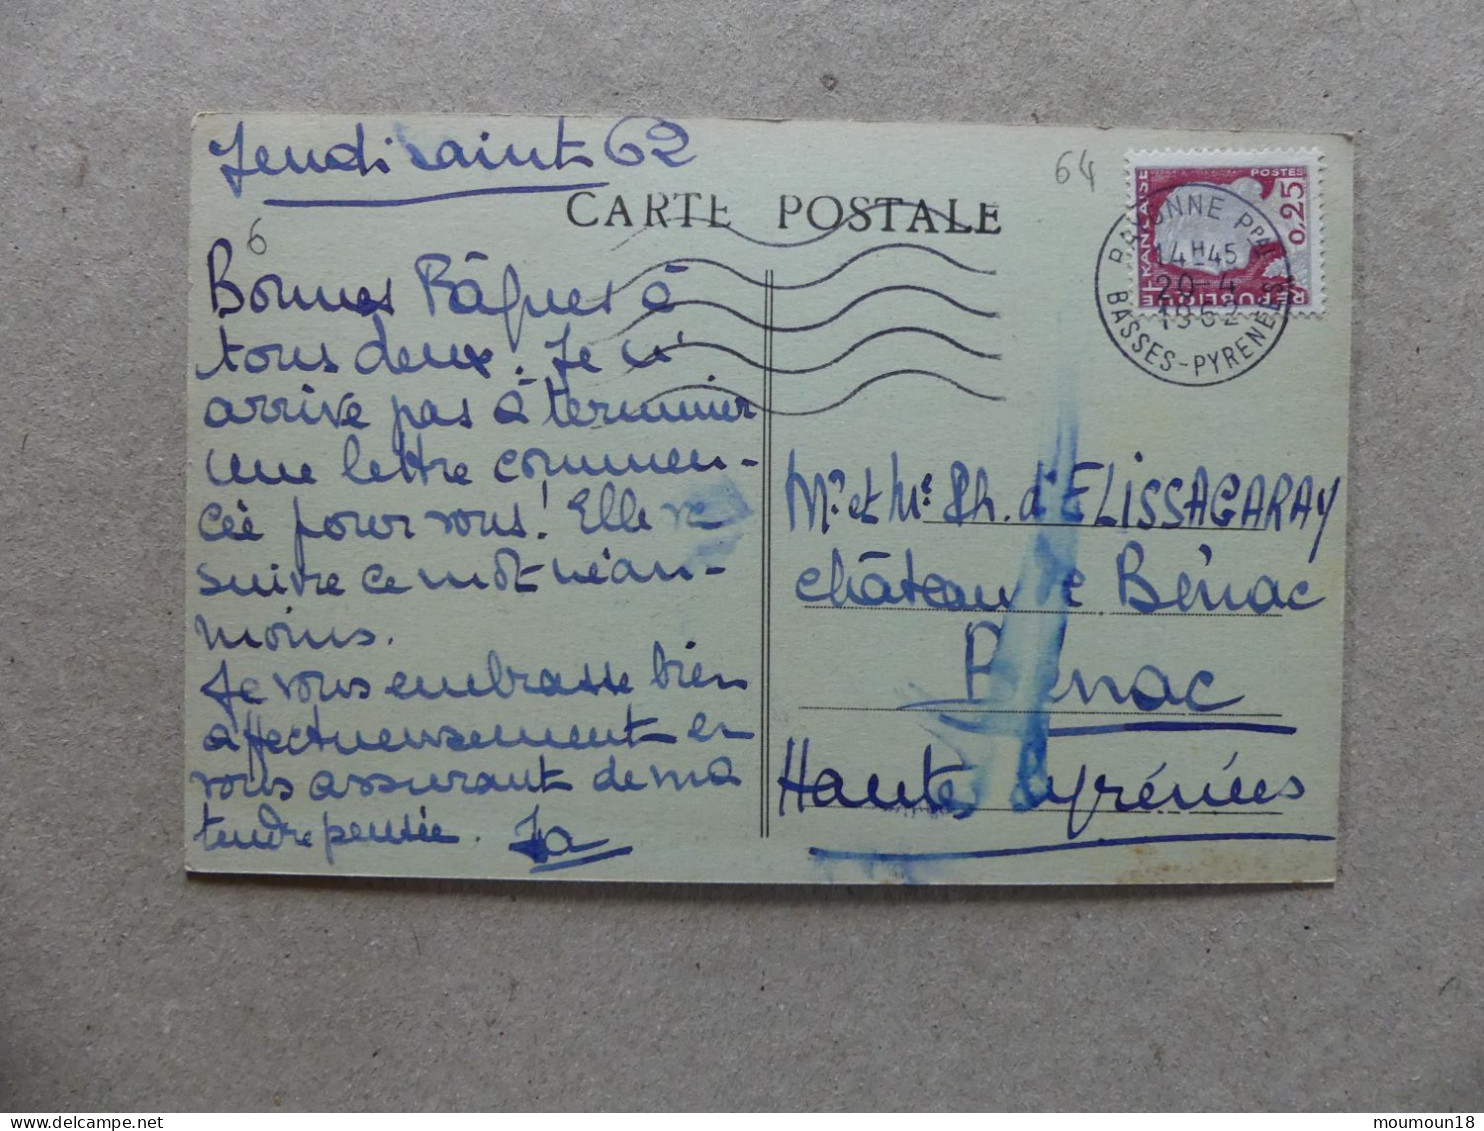 Jeudi saint 62
6
Bonnes Pâques à
tous deux. Je n'
arrive pas à terminer
une lettre commen-
cée pour vous! Elle va
suivre ce mot néan-
moins.
Je vous embrasse bien
affectueusement en
vous assurant de ma
tendre pensée. Ja
CARTE POSTALE
64
POSTES
0,25
REPUBLIQUE FRANÇAISE
BAYONNE PPAL
14H45
20-4
1962
BASSES-PYRENEES
Mr et Me Ph. d'ELISSAGARAY
château de Bénac
Bénac
Hautes Pyrénées
moumoun18